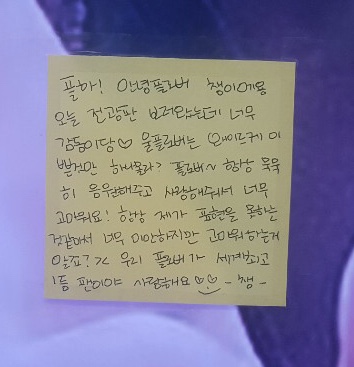 플하! 안녕플로버 챙이에용
오늘 전광판 보러왔는데 너무
감동이당♡ 울플로버는 왜이르케 이
쁜것만 해줘욜라? 플로버~ 항상 묵묵
히 응원해주고 사랑해줘서 너무
고마워요! 항상 제가 표현을 못하는
것같아서 너무 미안하지만 고마워하는거
알죠?>< 우리 플로버가 세계최고
1등 팬이야 사랑해요♡♡ -챙-